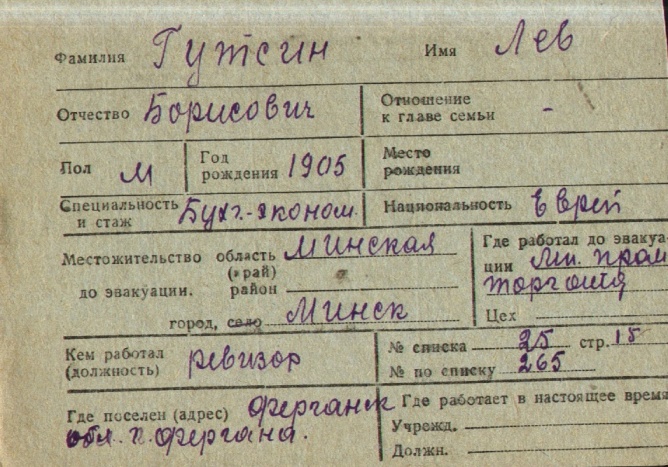 Фамилия Гутсин Имя Лев
Отчество Борисович Отношение к главе семьи -
Пол М Год рождения 1905 Место рождения
Специальность и стаж Бухг.-эконом. Национальность Еврей
Местожительство до эвакуации. область (край) Минская
район
город, село Минск
Где работал до эвакуа-
ции Мин. пром
торговля
Цех
Кем работал (должность) ревизор
№ списка 25 стр. 15
№ по списку 265
Где поселен (адрес) Ферганск
обл. г. Фергана.
Где работает в настоящее время
Учрежд.
Должн.